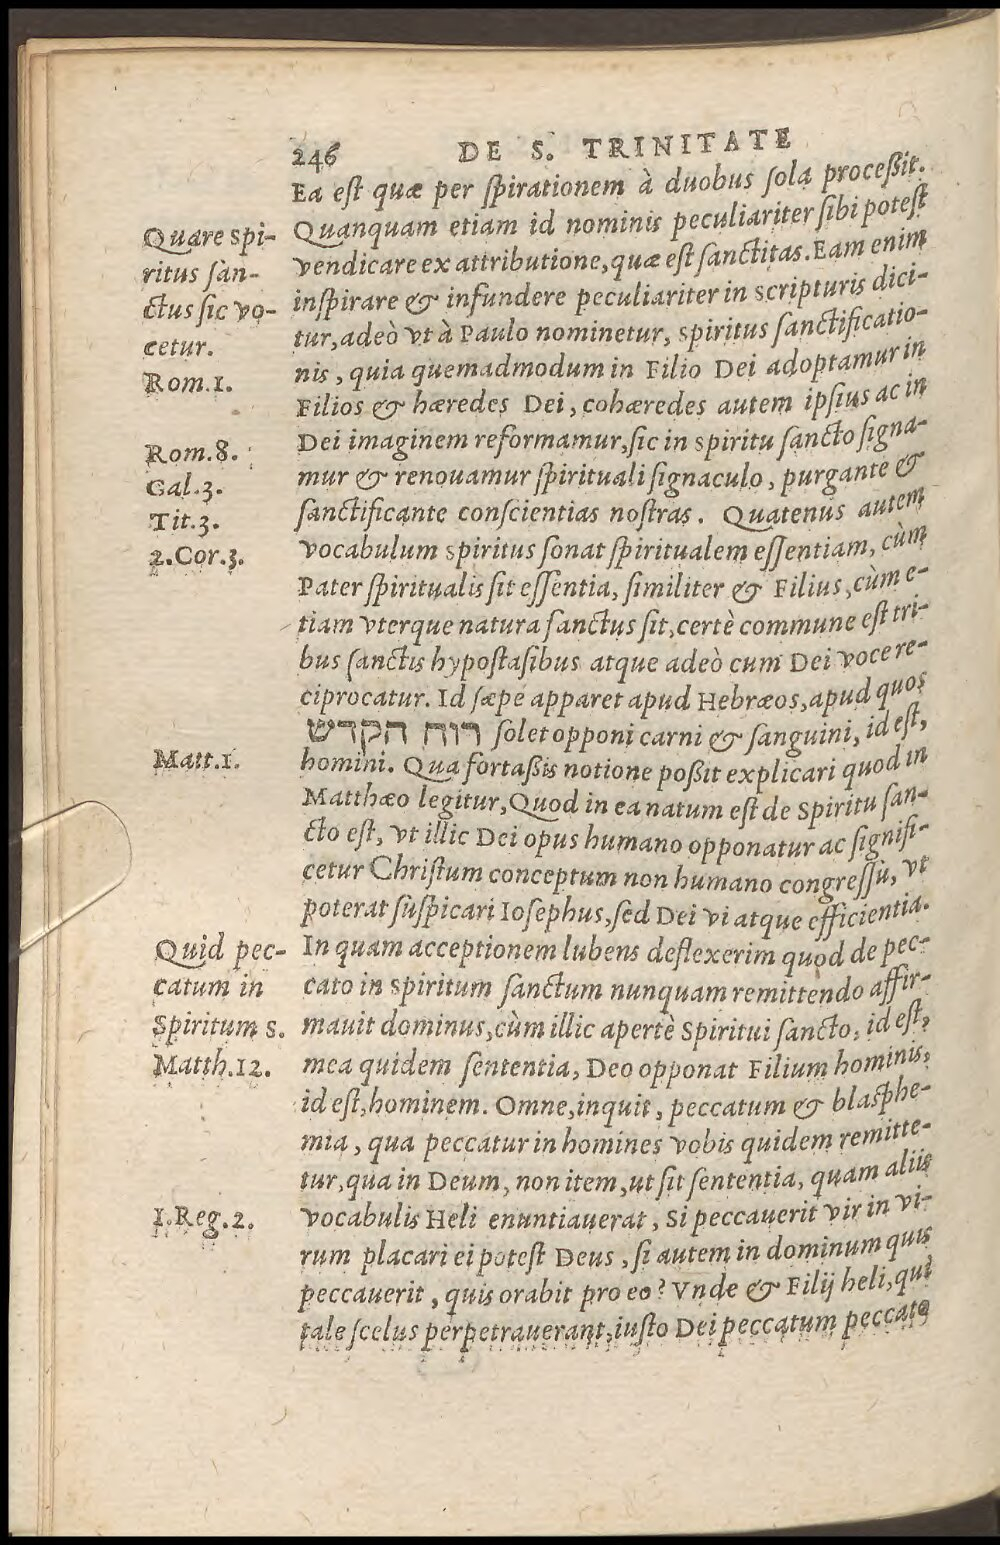 246 DE S. TRINITATE
Ea est quæ per spirationem à duobus sola proceßit.
Quanquam etiam id nominis peculiariter sibi potest
vendicare ex attributione, quæ est sanctitas. Eam enim
inspirare & infundere peculiariter in scripturis dici-
tur, adeò vt à Paulo nominetur, spiritus sanctificatio-
nis, quia quemadmodum in Filio Dei adoptamur in
Filios & hæredes Dei, cohæredes autem ipsius ac in
Dei imaginem reformamur, sic in spiritu sancto signa-
mur & renouamur spirituali signaculo, purgante &
sanctificante conscientias nostras. Quatenus autem
vocabulum spiritus sonat spiritualem essentiam, cùm
Pater spiritualis sit essentia, similiter & Filius, cùm e-
tiam vterque natura sanctus sit, certè commune est tri-
bus sanctis hypostasibus atque adeò cum Dei voce re-
ciprocatur. Id sæpe apparet apud Hebræos, apud quos
רוח הקדש solet opponi carni & sanguini, id est,
homini. Qua fortaßis notione poßit explicari quod in
Matthæo legitur, Quod in ea natum est de Spiritu san-
cto est, vt illic Dei opus humano opponatur ac signifi-
cetur Christum conceptum non humano congressu, vt
poterat suspicari Iosephus, sed Dei vi atque efficientia.
In quam acceptionem lubens deflexerim quod de pec-
cato in spiritum sanctum nunquam remittendo affir-
mauit dominus, cùm illic apertè Spiritui sancto, id est,
mea quidem sententia, Deo opponat Filium hominis,
id est, hominem. Omne, inquit, peccatum & blasphe-
mia, qua peccatur in homines vobis quidem remitte-
tur, qua in Deum, non item, ut sit sententia, quam aliis
vocabulis Heli enuntiauerat, Si peccauerit vir in vi-
rum placari ei potest Deus, si autem in dominum quis
peccauerit, quis orabit pro eo? Vnde & Filij heli, qui
tale scelus perpetrauerant, iusto Dei peccatum peccato
Quare spi-
ritus san-
ctus sic vo-
cetur.
Rom.1.
Rom.8.
Gal.3.
Tit.3.
2.Cor.3.
Matt.1.
Quid pec-
catum in
Spiritum S.
Matth.12.
1.Reg.2.